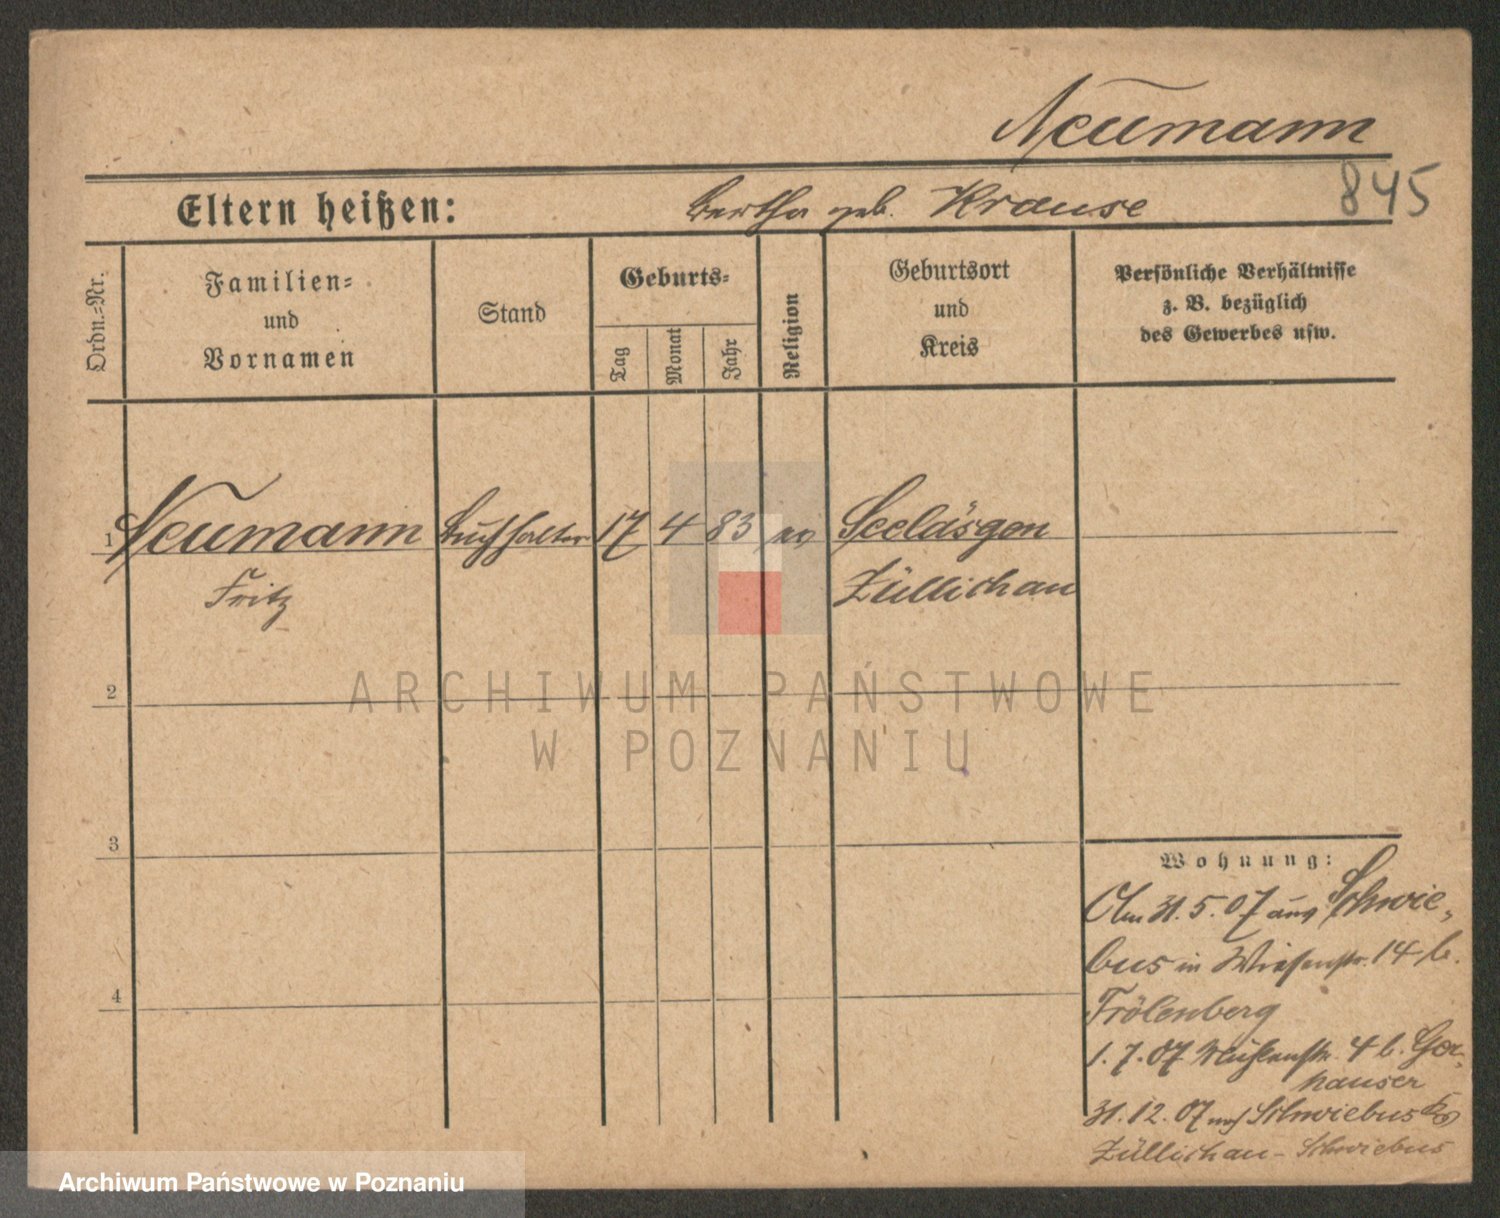 Neumann
845
Eltern heißen: Bertha geb. Krause
Ordn.=Nr.
Familien=
und
Vornamen
Stand
Geburts=
Tag
Monat
Jahr
Religion
Geburtsort
und
Kreis
Persönliche Verhältnisse
z. B. bezüglich
des Gewerbes usw.
1 Neumann Buchhalter 17 4 83 ev Seeläsgen
Fritz Züllichau
2
3
4
Wohnung:
Am 31.5.07 aus Schwie-
bus in Wiesenstr. 14 b.
Frölenberg
1.7.07 Mühlenstr. 4 b. Ger-
hauser
31.12.07 nach Schwiebus Krs
Züllichau - Schwiebus
ARCHIWUM PAŃSTWOWE
W POZNANIU
Archiwum Państwowe w Poznaniu